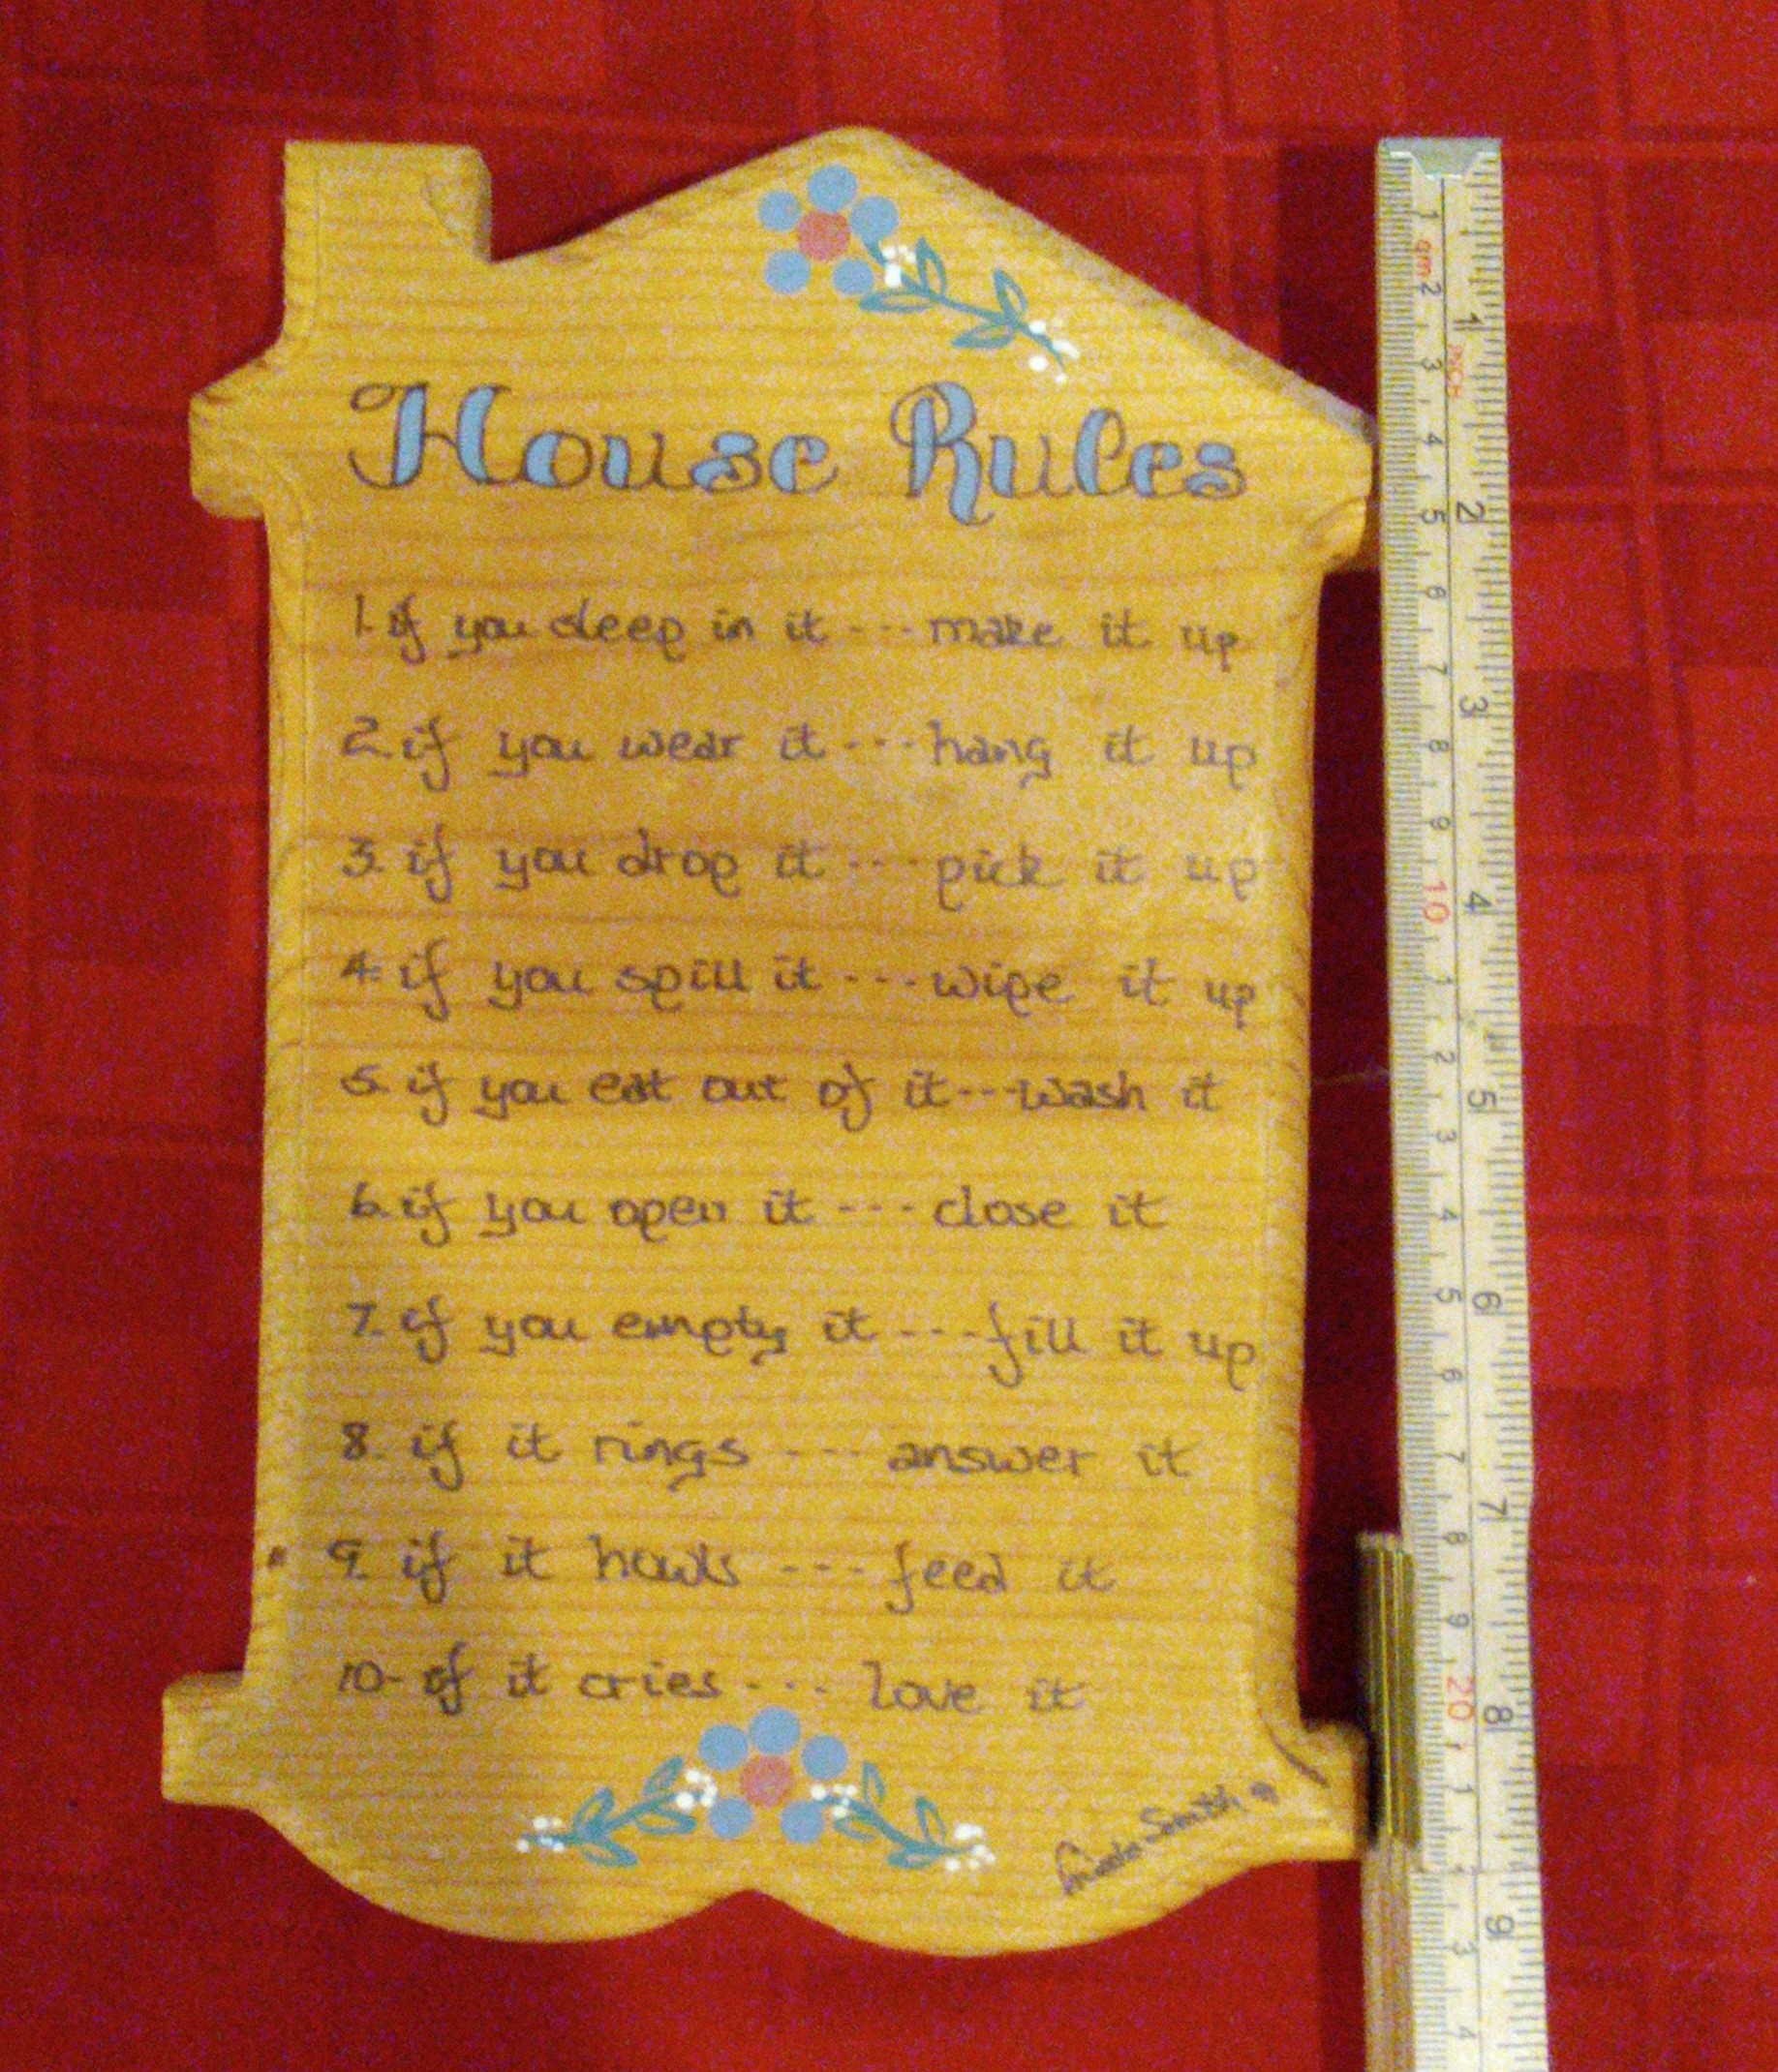 House Rules
1. if you sleep in it --- make it up
2. if you wear it --- hang it up
3. if you drop it --- pick it up
4. if you spill it --- wipe it up
5. if you eat out of it --- wash it
6. if you open it --- close it
7. if you empty it --- fill it up
8. if it rings --- answer it
9. if it howls --- feed it
10- if it cries --- love it
Smith
1 2 3 4 5 6 7 8 9 10 1 2 3 4 5 6 7 8 9 20 1 3 4
1 2 3 4 5 6 7 8 9